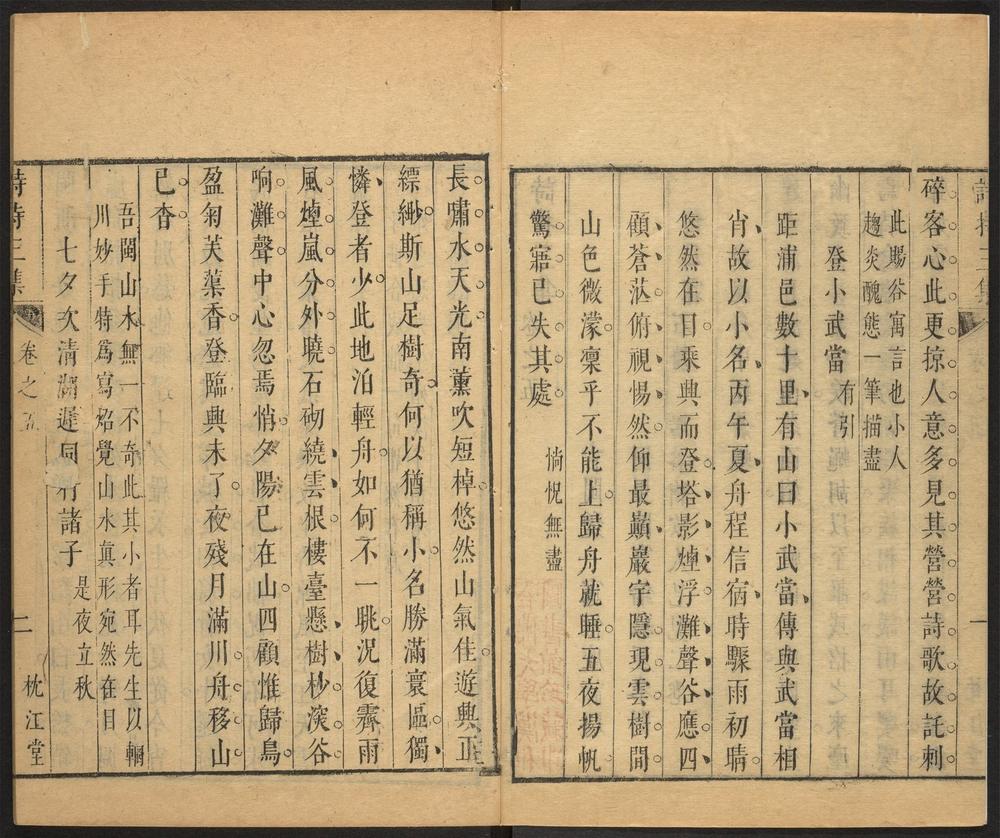 碎客心此更掠人意多見其營營詩歌故託刺
此賜谷寓言也小人
趨炎醜態一筆描盡
登小武當 有引
距浦邑數十里有山曰小武當傳與武當相
肖故以小名丙午夏舟程信宿時驟雨初晴
悠然在目乘興而登塔影煙浮灘聲谷應四
顧蒼茫俯視惕然仰最巔巖宇隱現雲樹間
山色微濛凜乎不能上歸舟就睡五夜揚帆
驚寤已失其處 惝怳無盡
一
長嘯水天光南薰吹短棹悠然山氣佳遊興正
縹緲斯山足樹奇何以猶稱小名勝滿寰區獨
憐登者少此地泊輕舟如何不一眺況復霽雨
風煙嵐分外曉石砌繞雲根樓臺懸樹杪深谷
响灘聲中心忽焉悄夕陽已在山四顧惟歸鳥
盈匊芙蕖香登臨興未了夜殘月滿川舟移山
已杳
吾閩山水無一不奇此其小者耳先生以輞
川妙手特為寫炤覺山水真形宛然在目
七夕次清湖遲同行諸子 是夜立秋
詩持三集 卷之五 二 枕江堂